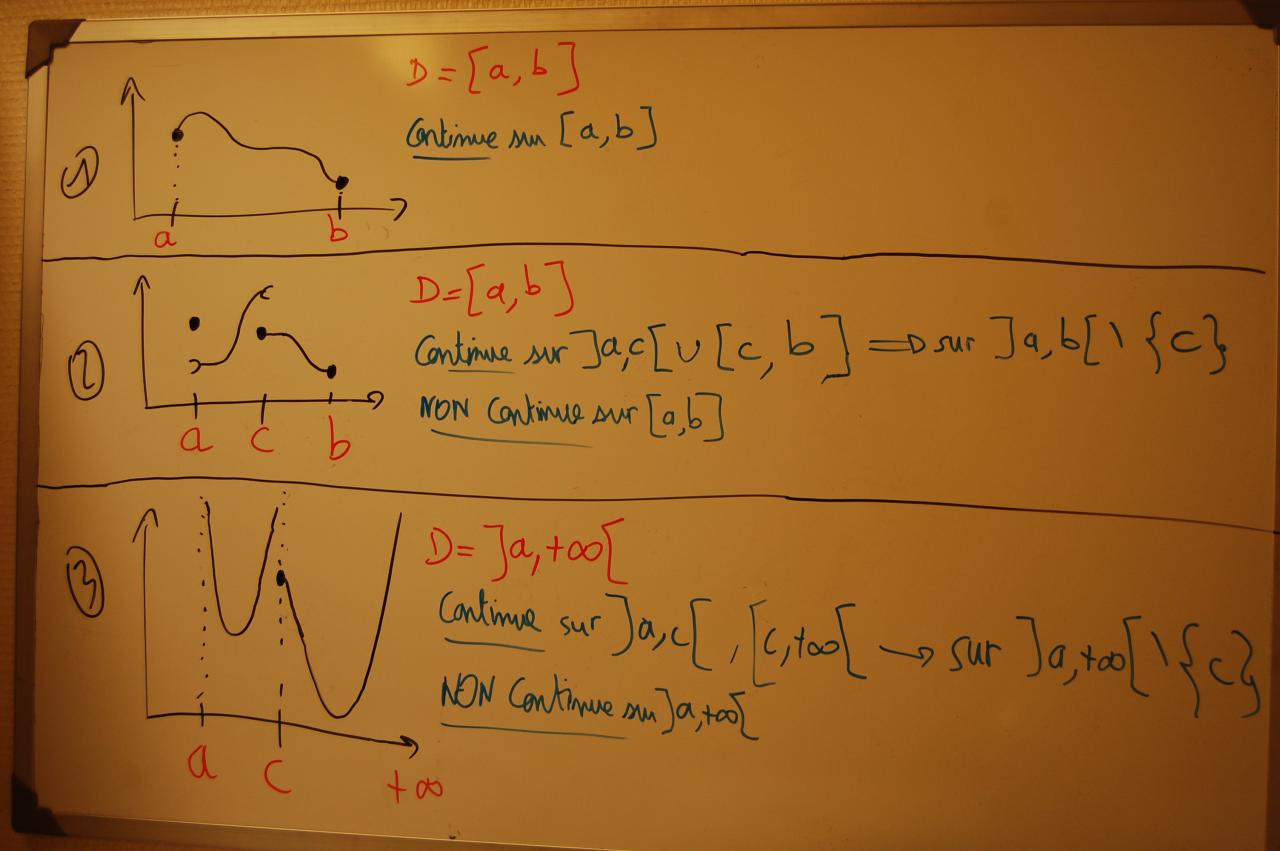 ①
D = [a, b]
Continue sur [a, b]
a b
②
D = [a, b]
Continue sur ]a, c[ ∪ [c, b] ⟹ sur ]a, b[ \ {c}
NON Continue sur [a, b]
a c b
③
D = ]a, +∞[
Continue sur ]a, c[ , [c, +∞[ → sur ]a, +∞[ \ {c}
NON Continue sur ]a, +∞[
a c +∞